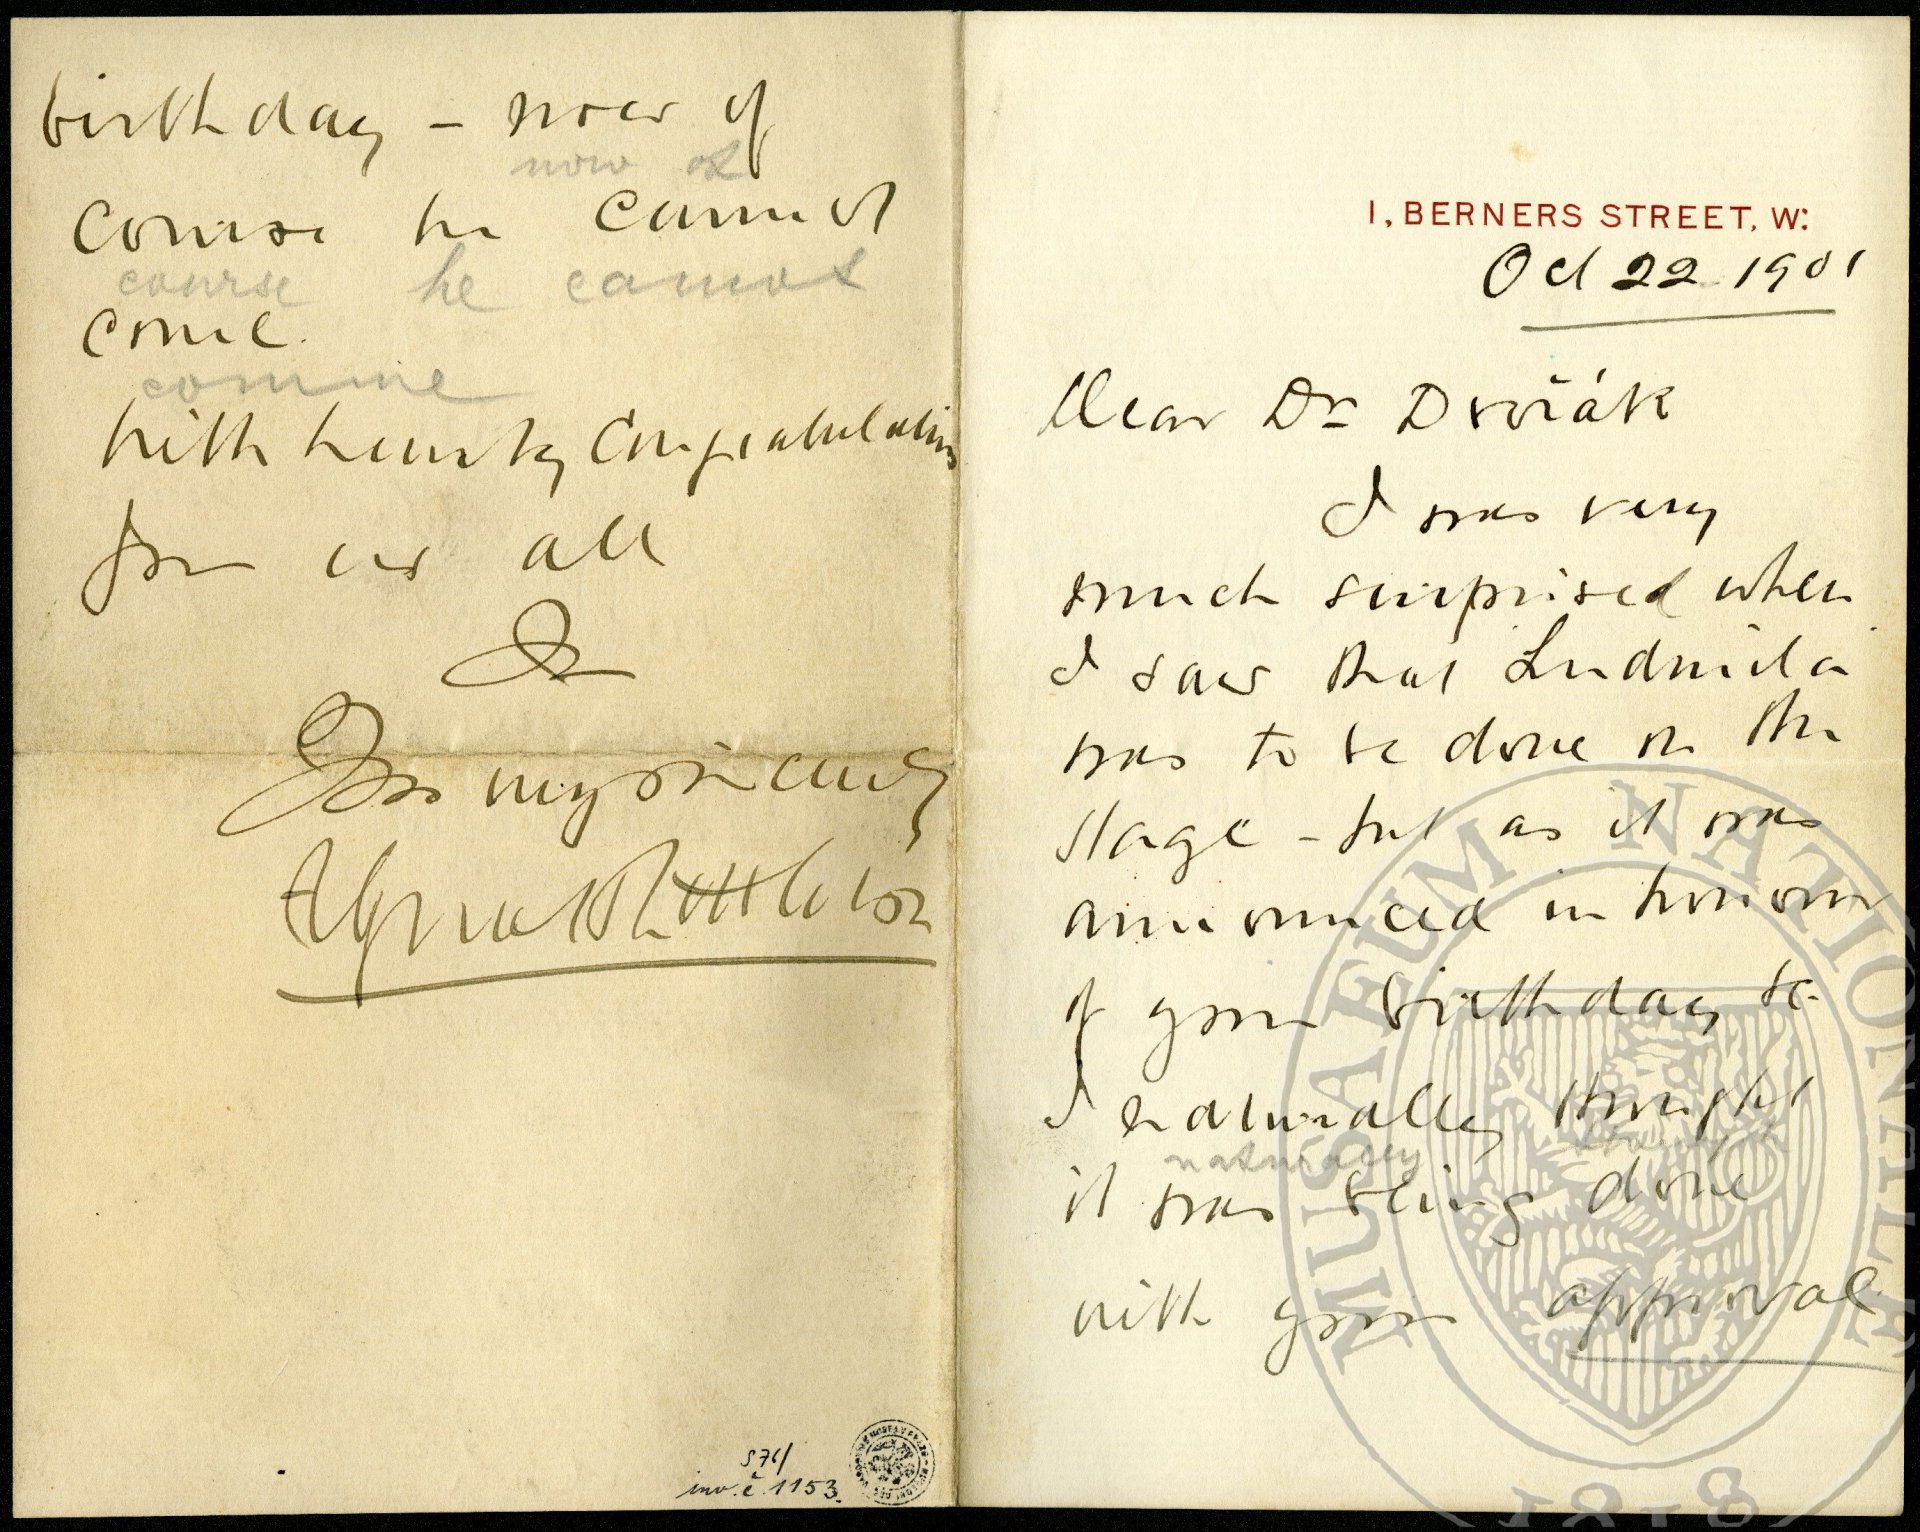 1, BERNERS STREET, W:
Oct 22 1901
Dear Dr Dvořák
I was very
much surprised when
I saw that Ludmila
was to be done on the
stage - but as it was
announced in honour
of your birthday &c.
I naturally thought
naturally thought
it was being done
with your approval
birthday - now of
now of
course he cannot
course he cannot
come.
comme
With hearty Congratulations
from us all
I am
Yours very sincerely
Alfred H Littleton
576/
inv. č. 1153.
MUSAEUM NATIONALE
1818